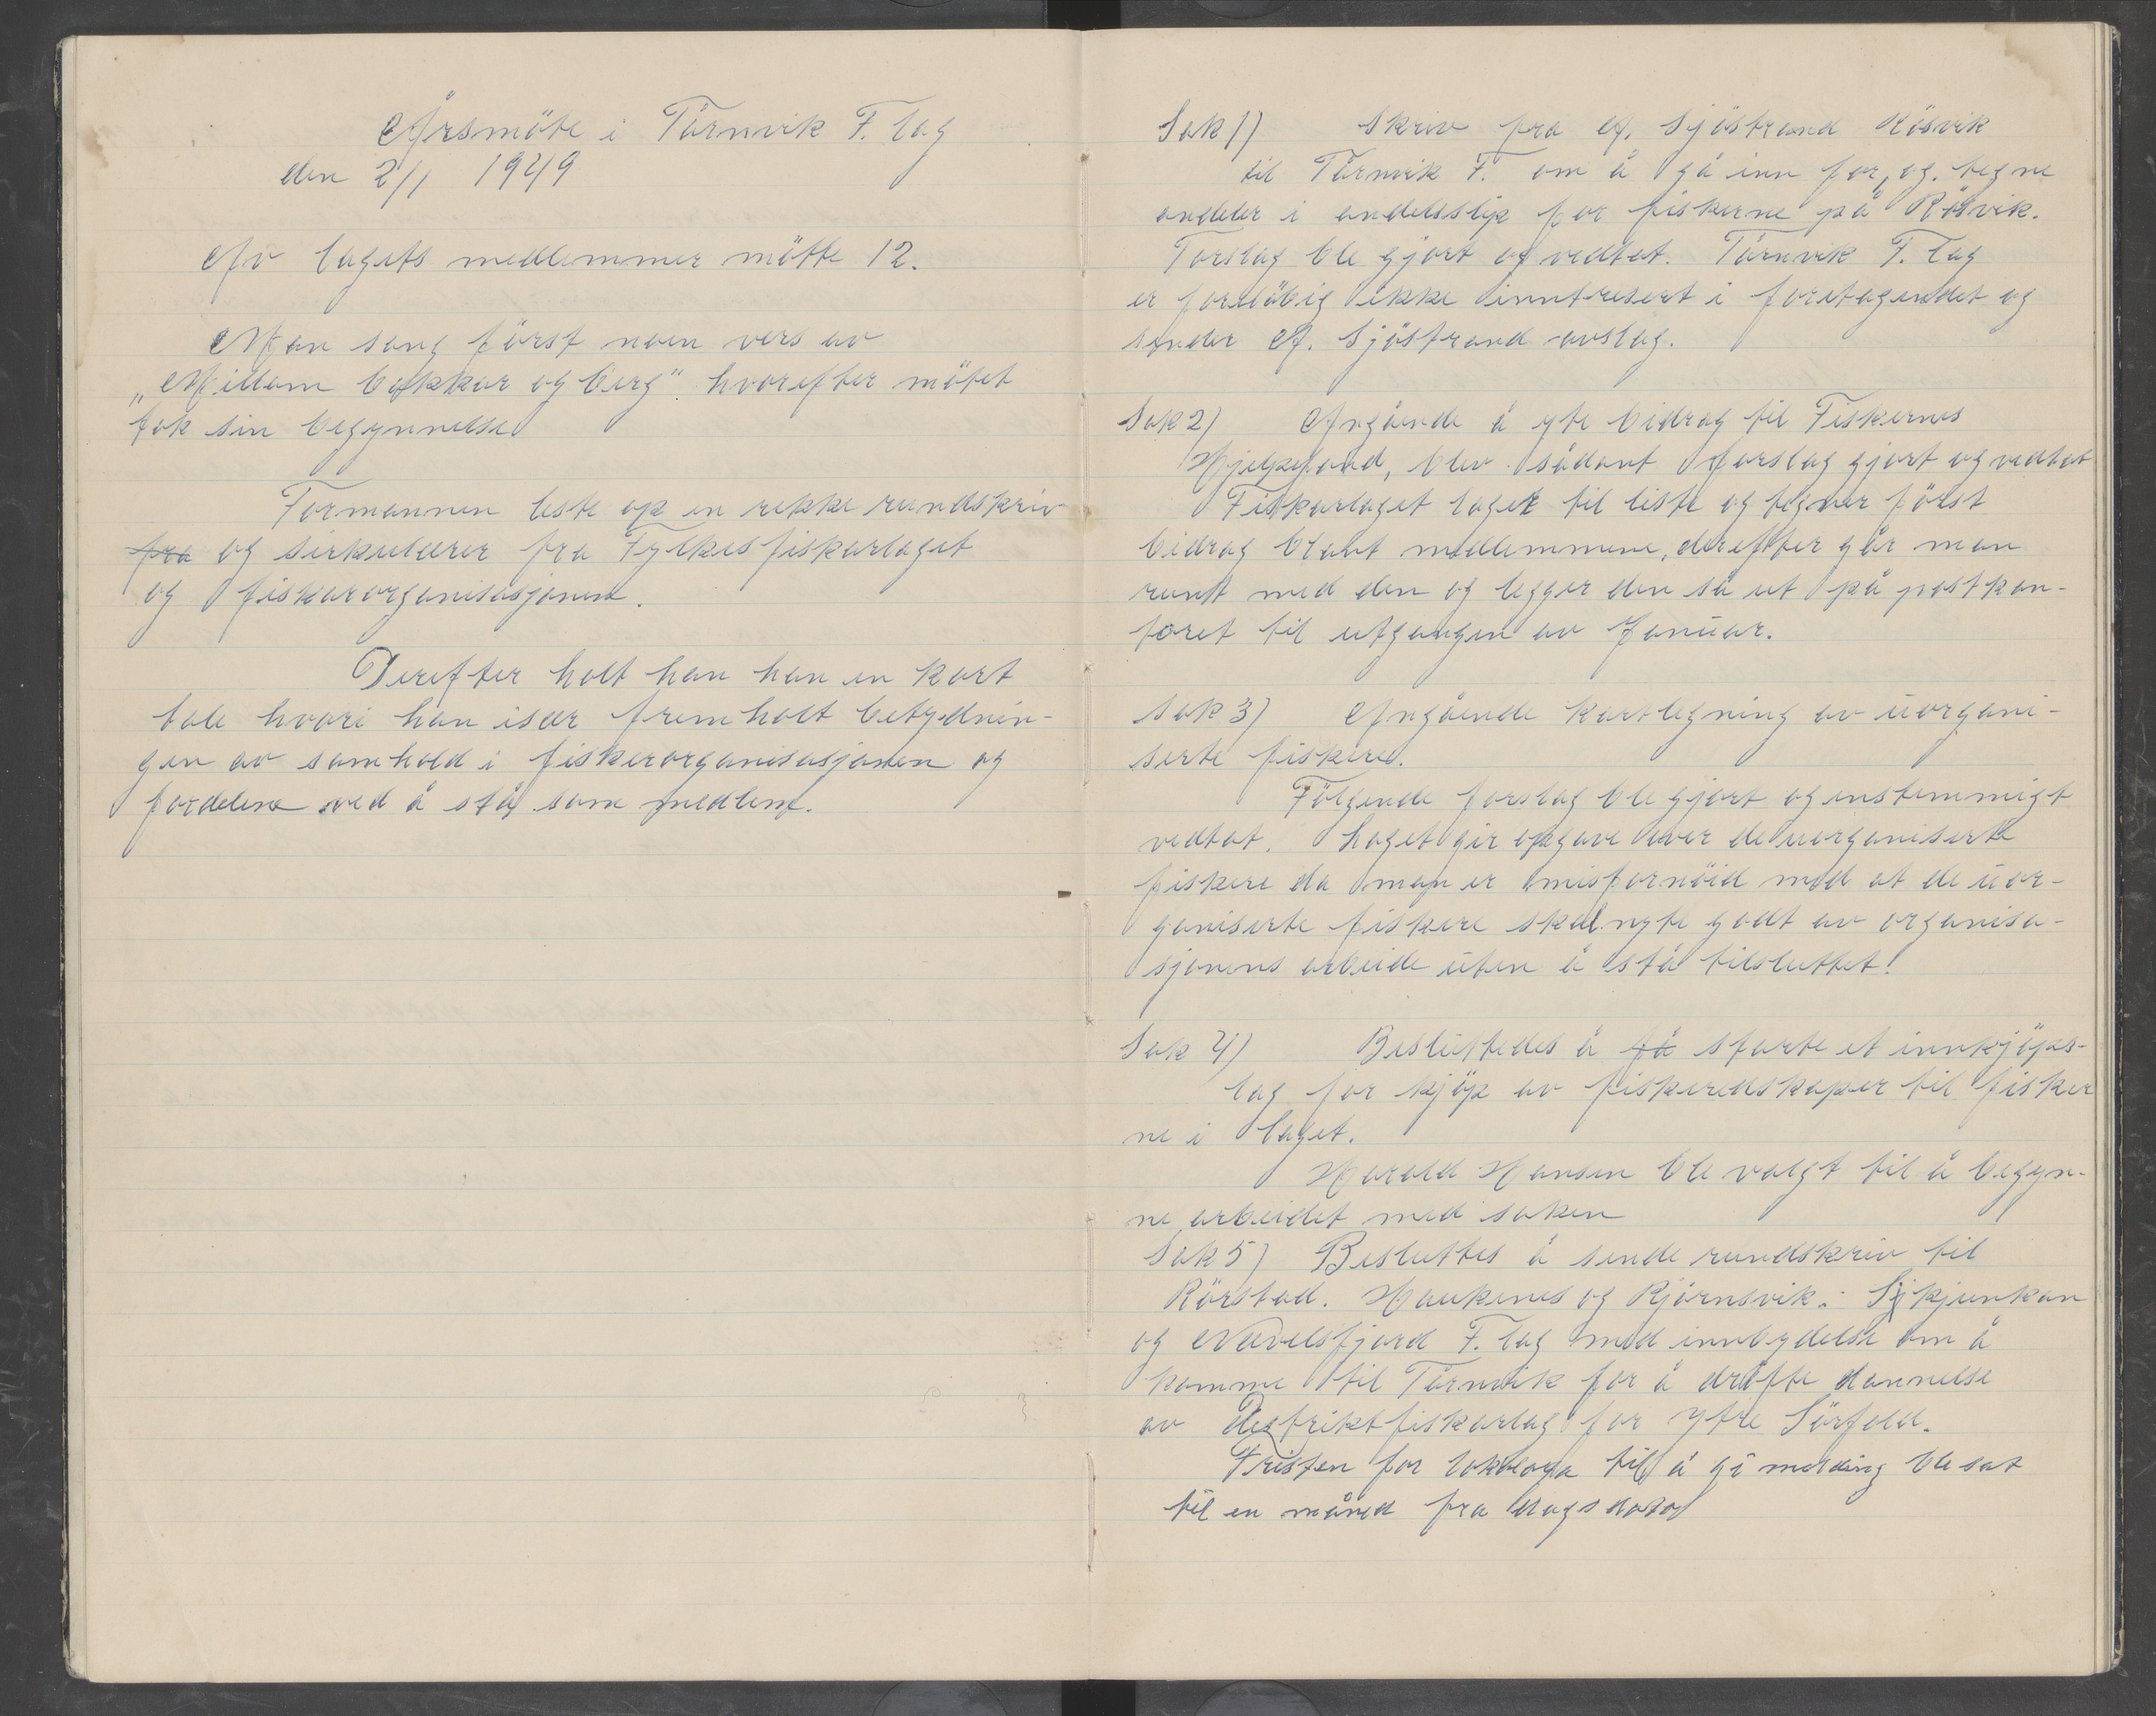 Årsmöte i Tårnvik F. lag
den 2/1 1949
Av lagets medlemmer mötte 12.
Man sang först noen vers av
„Millom bakkar og berg" hvorefter mötet
tok sin begynnelse
Formannen leste op en rekke rundskriv
fra og sirkulærer fra Fylkesfiskarlaget
og fiskarorganisasjonen.
Derefter holt han han en kort
tale hvori han især fremholt betydnin-
gen av samhold i fiskerorganisasjonen og
fordelene ved å stå som medlem.
Sak 1) Skriv fra A. Sjöstrand Rösvik
til Tårnvik F. om å gå inn for, og tegne
andeler i andelsslip for fiskerne på Rösvik.
Forslag ble gjort og vedtat. Tårnvik F. lag
er foreløbig ikke inntresert i foretagendet og
sender A. Sjöstrand avslag.
Sak 2) Angående å yte bidrag til Fiskernes
Hjelpefond, blev sådant forslag gjort og vedtat
Fiskarlaget lager til liste og tegner först
bidrag blant medlemmene, derefter går man
rundt med den og legger den så ut på postkon-
toret til utgangen av Januar.
Sak 3) Angående kartlegning av uorgani-
serte fiskere.
Fölgende forslag ble gjort og enstemmigt
vedtat. Laget gir opgave over de uorganiserte
fiskere da man er misfornöid med at de uor-
ganiserte fiskere skal nyte godt av organisa-
sjonens arbeide uten å stå tilsluttet!
Sak 4) Besluttedes å få starte et innkjöps-
lag for kjöp av fiskeredskaper til fisker
ne i laget.
Harald Hansen ble valgt til å begyn-
ne arbeidet med saken
Sak 5) Besluttes å sende rundskriv til
Rörstad. Haukenes og Kjörnsvik.
og Nevelsfjord F. lag med innbydelse om å
komme til Tårnvik for å dröfte dannelse
av Destriktfiskarlag for Ytre Sörfold.
Fristen for lokallaga til å gi melding ble sat
til en måned fra dags dato